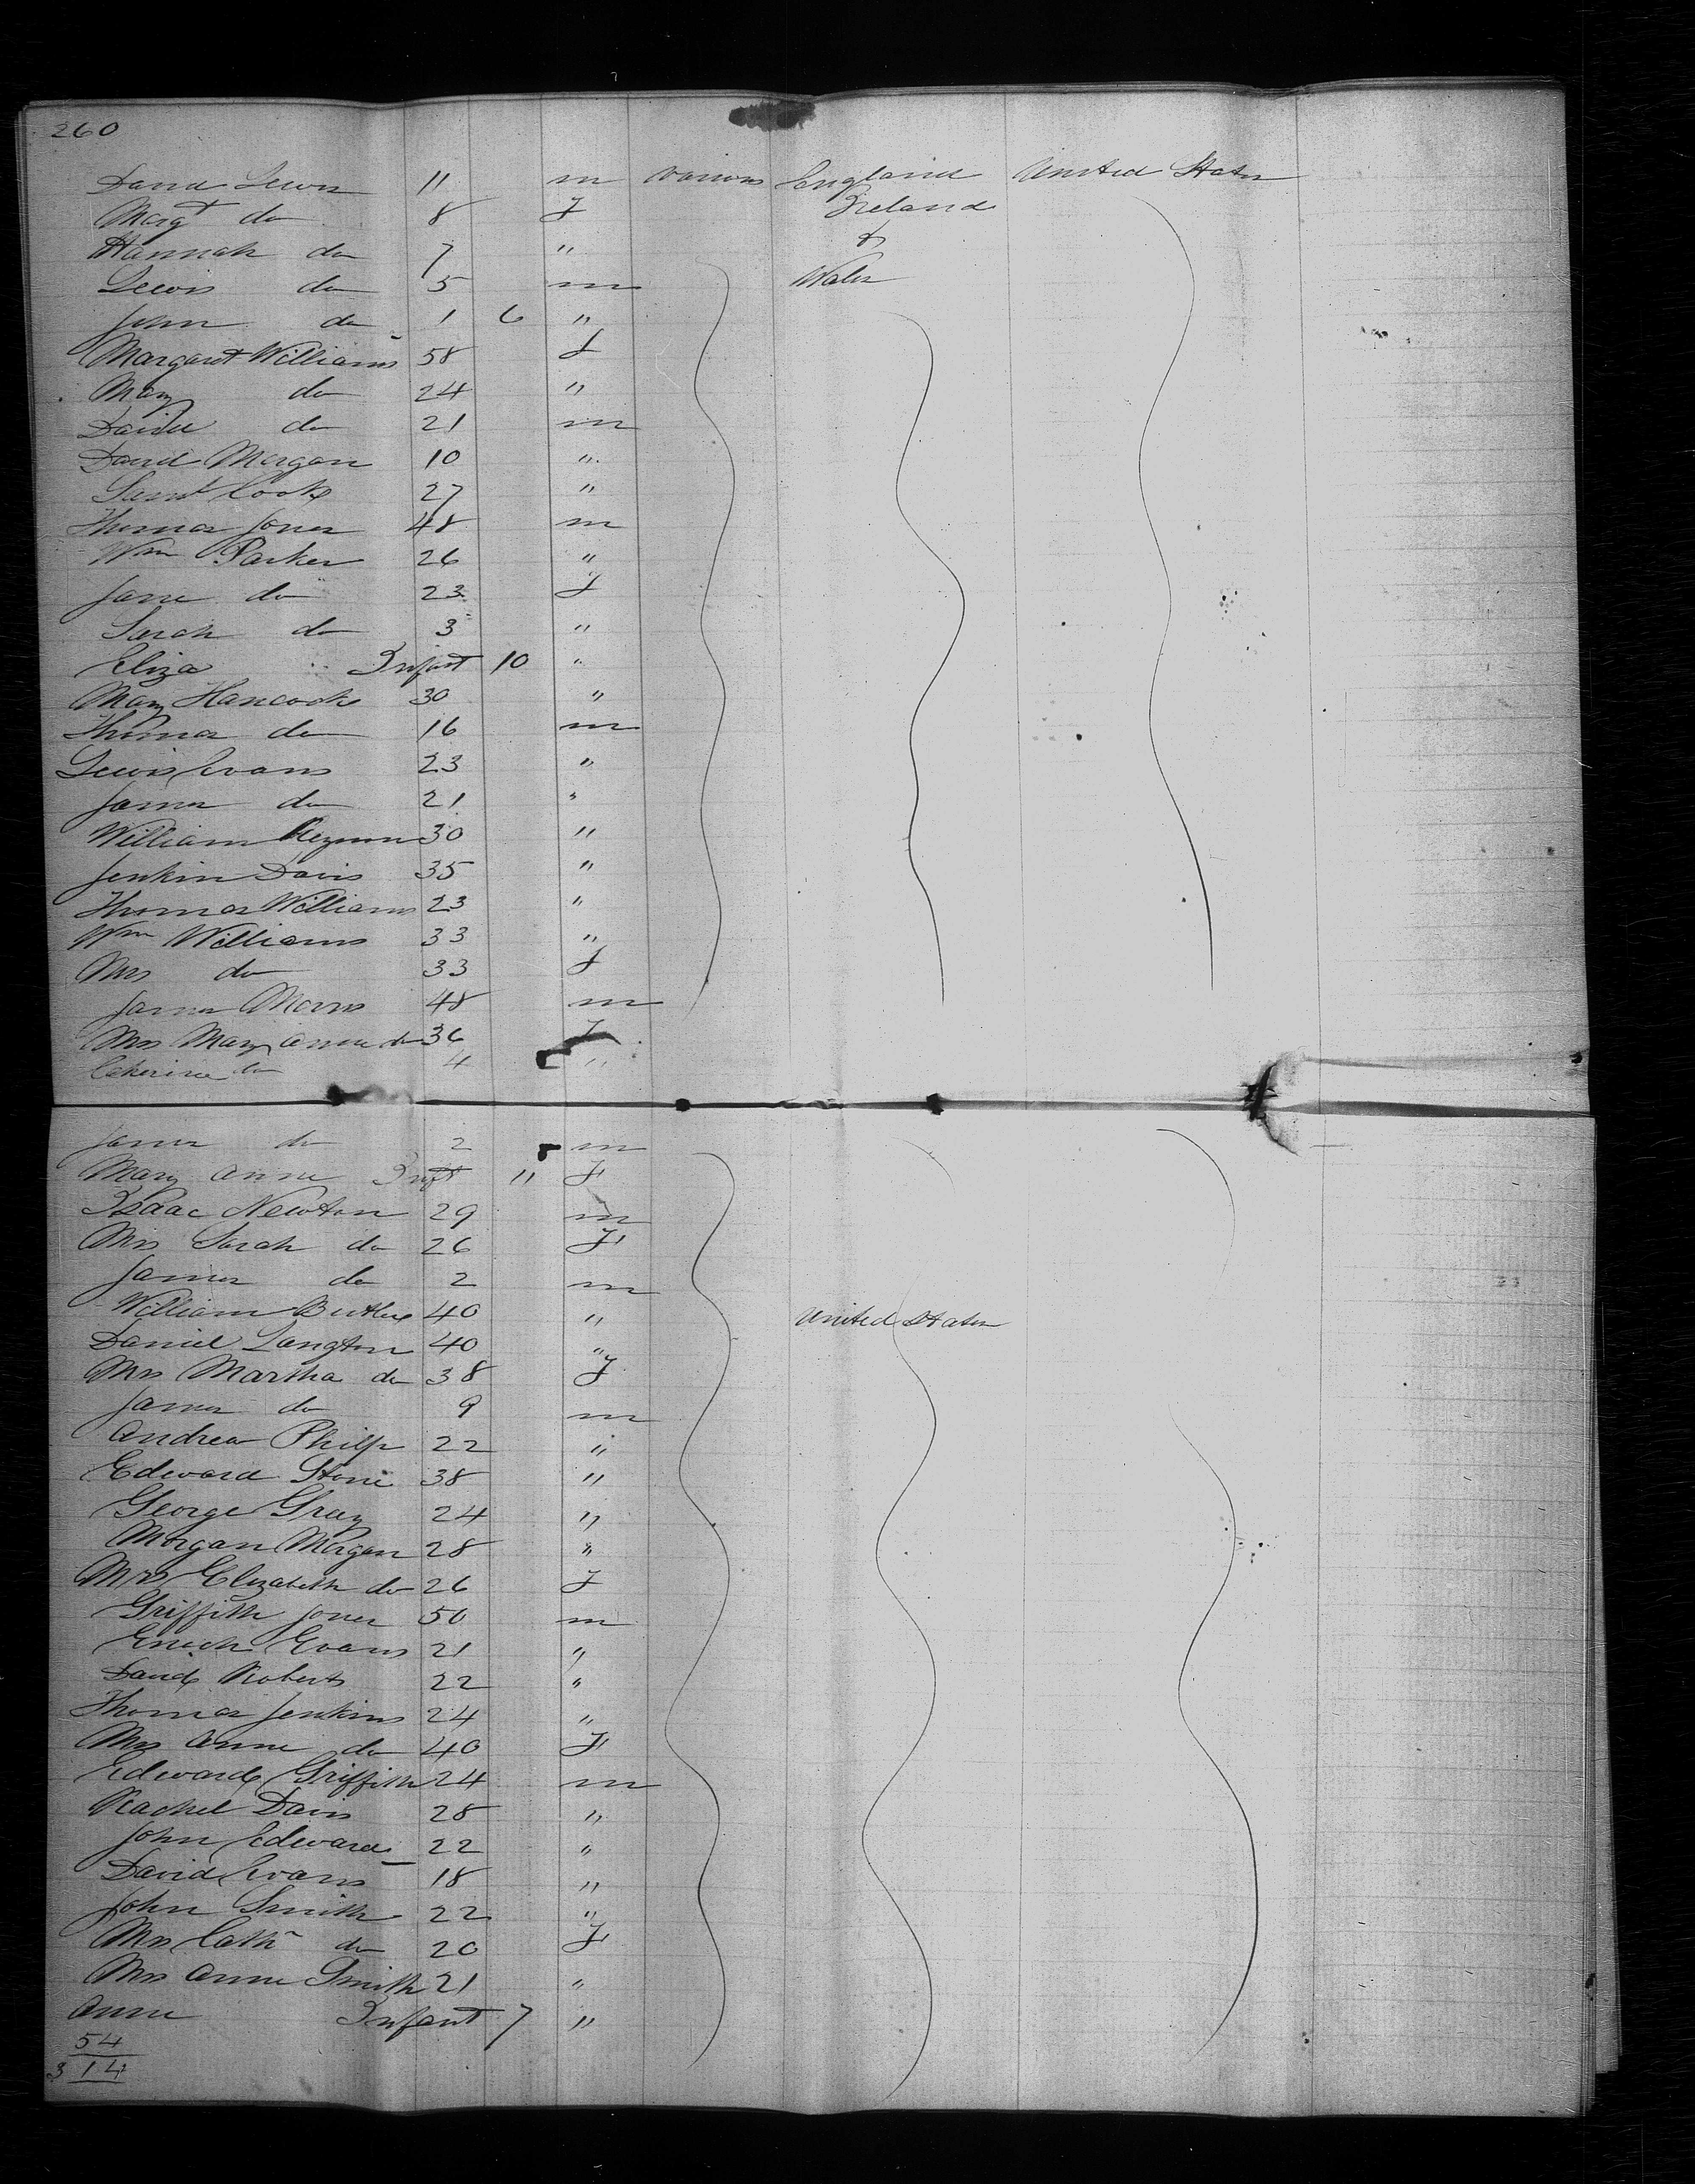 260
David Lewis 11 m various England United States
Margt do 8 f Ireland
Hannah do 7 " &
Lewis do 5 m Wales
John do 1 6 "
Margaret Williams 58 f
Mary do 24 "
David do 21 m
David Morgan 10 "
Saml Cook 27 "
Thomas Jones 48 m
Wm Parker 26 "
Jane do 23 f
Sarah do 3 "
Eliza " Infant 10 "
Mary Hancock 30 "
Thomas do 16 m
Lewis Evans 23 "
James do 21 "
William 30 "
Jenkin Davis 35 "
Thomas Williams 23 "
Wm Williams 33 "
Mrs do 33 f
James Morris 48 m
Mrs Mary Anne do 36 f
do 4 "
James do 2 m
Mary Anne Inft 11 f
Isaac Newton 29 m
Mrs Sarah do 26 f
James do 2 m
William Butler 40 " United States
Daniel Langton 40 "
Mrs Martha do 38 f
James do 9 m
Andrew Philp 22 "
Edward Stone 38 "
George Gray 24 "
Morgan Morgan 28 "
Mrs Elizabeth do 26 f
Griffith Jones 50 m
Enoch Evans 21 "
David Roberts 22 "
Thomas Jenkins 24 "
Mrs Anne do 40 f
Edward Griffith 24 m
Rachel Davis 28 "
John Edwards 22 "
David Evans 18 "
John Smith 22 "
Mrs Cath do 20 f
Mrs Anne Smith 21 "
Anne Infant 7 "
54
314